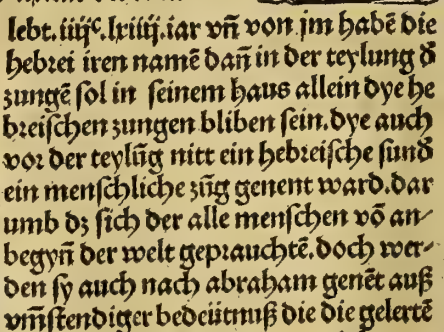 lebt.iiijᶜ.lxiiij.iar vn̄ von jm habē die
hebrei iren namē dan̄ in der teylung d᷑
zungē sol in seinem haus allein dye he
breischen zungen bliben sein.dye auch
vor der teylūg nitt ein hebreische sund᷑
ein menschliche zūg genent ward.dar
umb dz sich der alle menschen vō an⸗
begyn̄ der welt geprauchtē.doch wer⸗
den sy auch nach abraham genēt auß
vm̄stendiger bedeütnuß die die gelertē